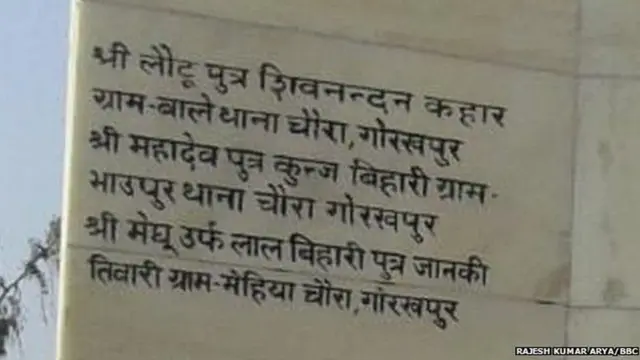 श्री लौटू पुत्र शिवनन्दन कहार
ग्राम-बाले थाना चौरा, गोरखपुर
श्री महादेव पुत्र कुन्ज बिहारी ग्राम-
भाउपुर थाना चौरा गोरखपुर
श्री मेघू उर्फ लाल बिहारी पुत्र जानकी
तिवारी ग्राम-मेहिया चौरा, गोरखपुर
RAJESH KUMAR ARYA/BBC